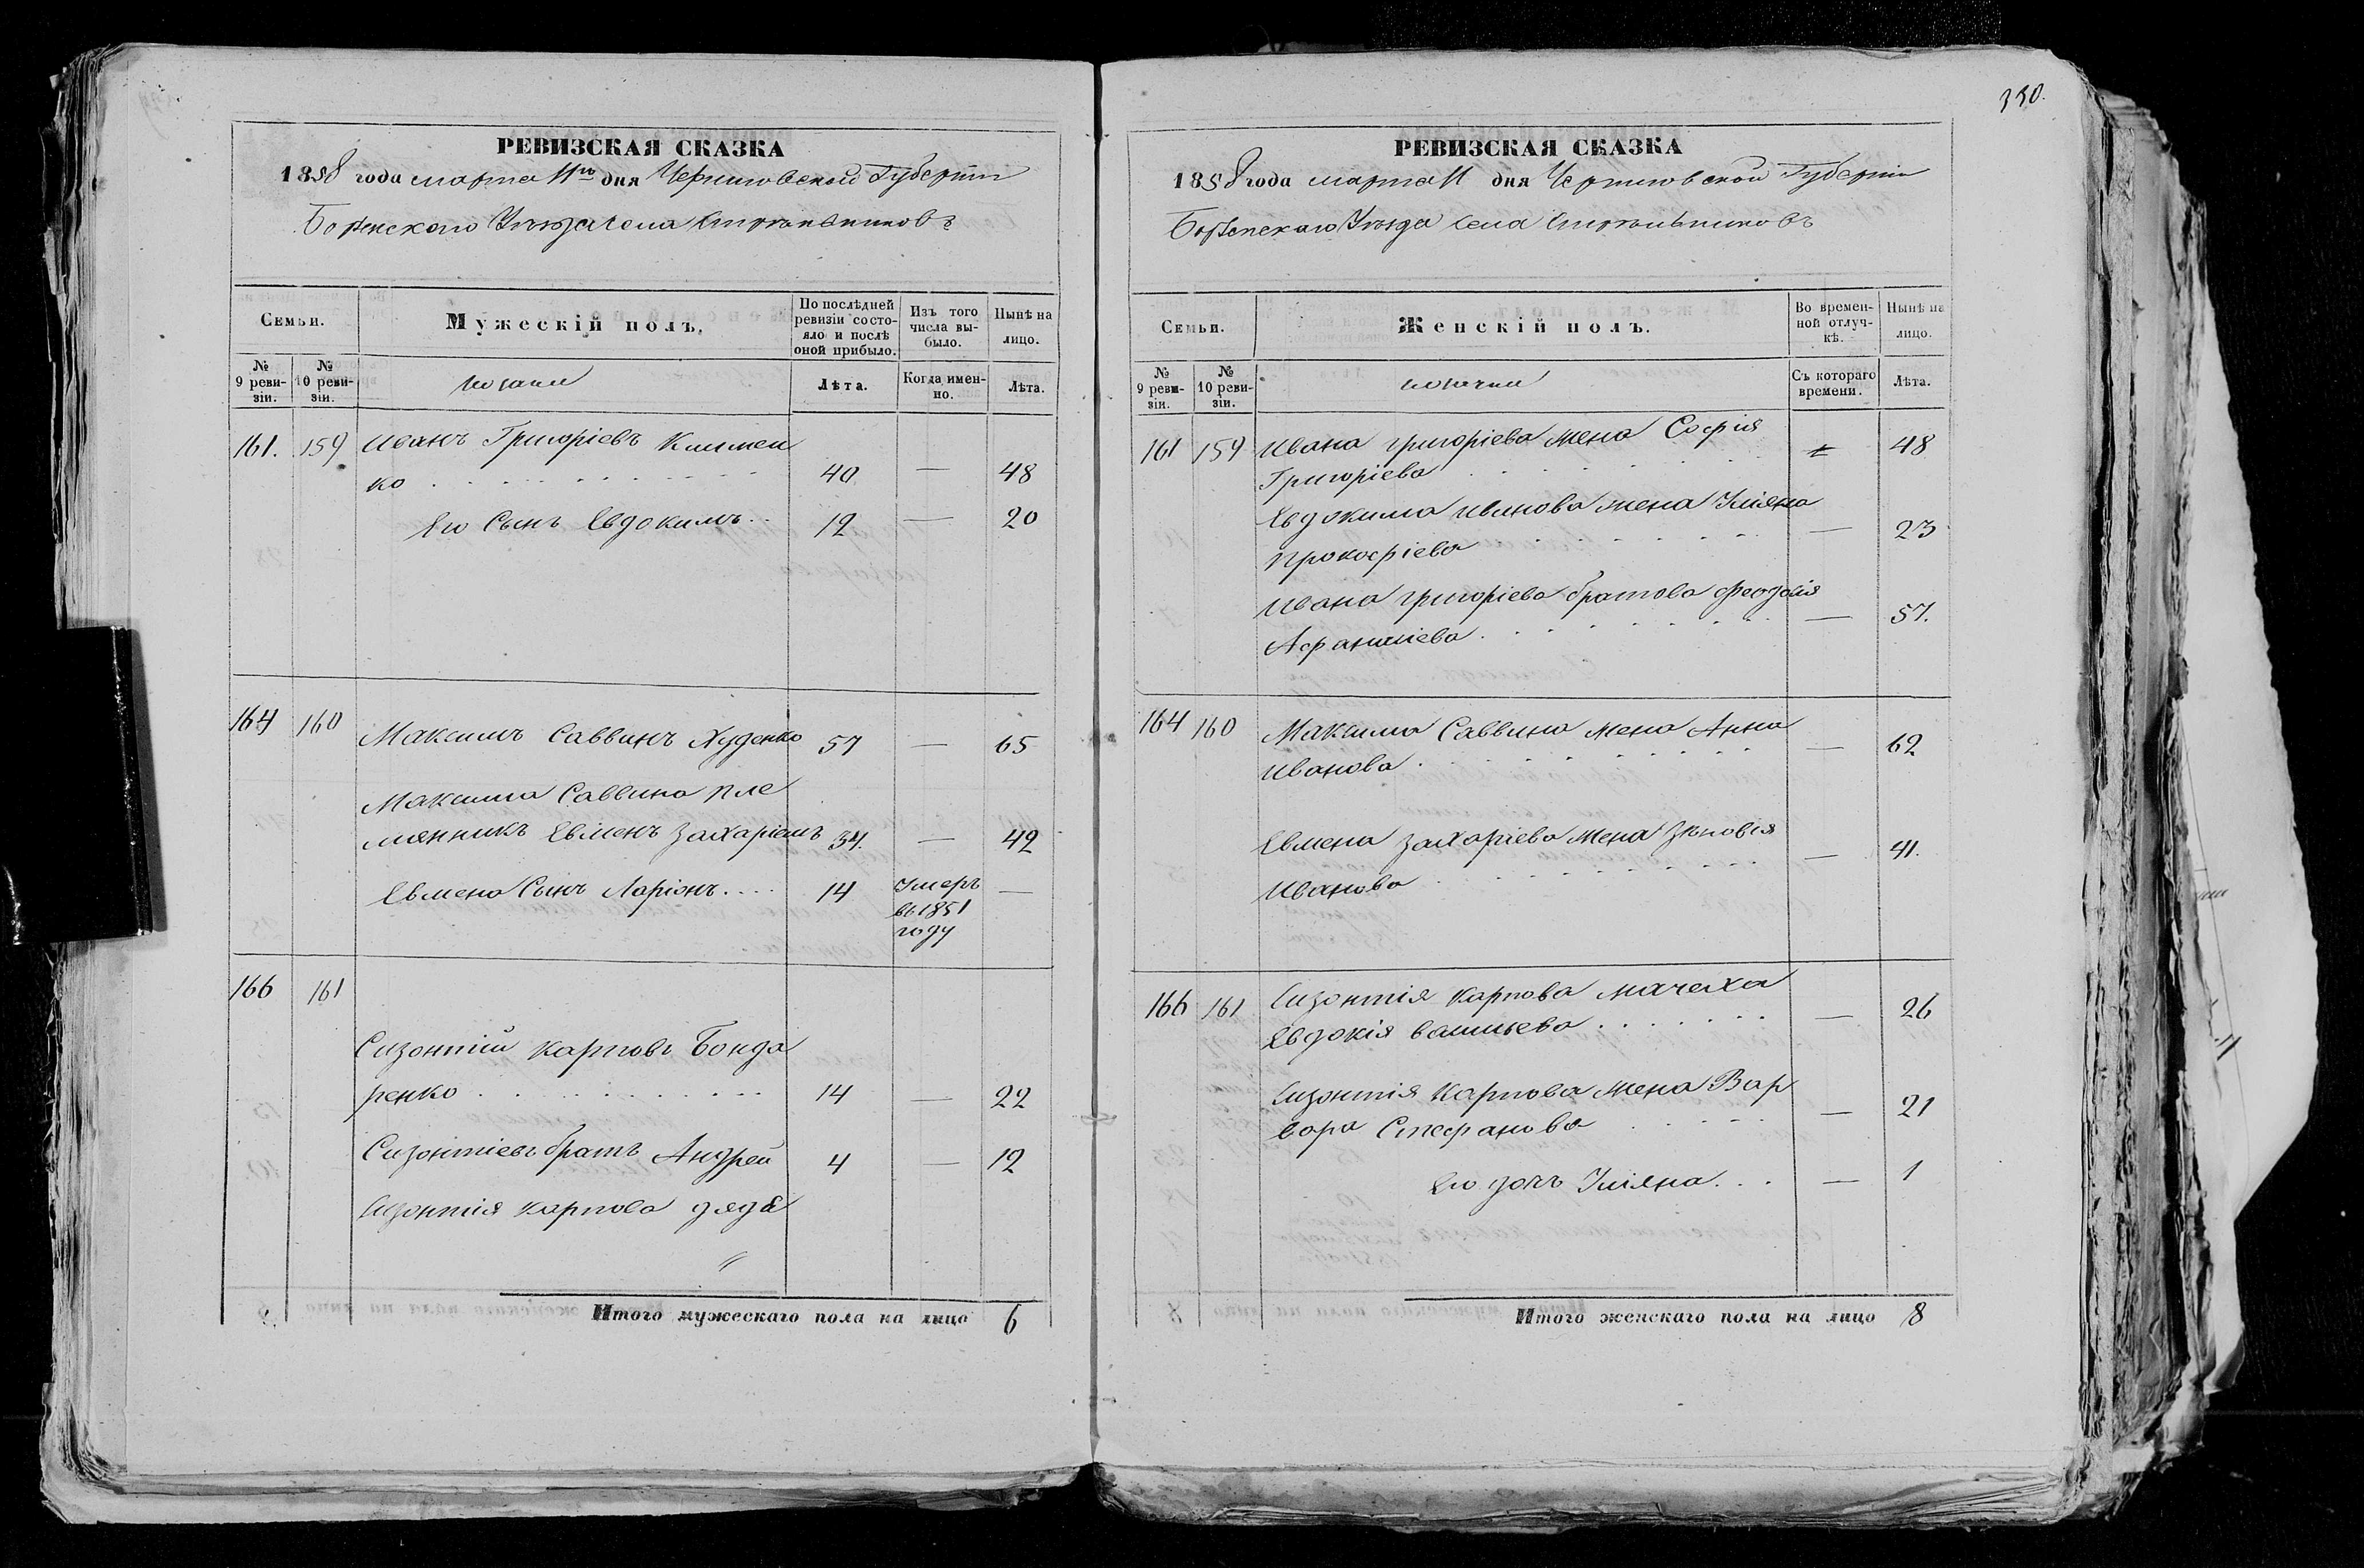 350.
РЕВИЗСКАЯ СКАЗКА
1858 года марта 11го дня Черниговской Губернiи
Борзенского Уѣзда села Стрѣльниковъ
Семьи.
Мужескій полъ.
По послѣдней ревизіи состояло и послѣ оной прибыло.
Изъ того числа выбыло.
Нынѣ на лицо.
№ 9 ревизіи.
№ 10 ревизіи.
козаки
Лѣта.
Когда именно.
Лѣта.
161. 159 Иванъ Григоріевъ Климен
ко 40 — 48
Его Сынъ Евдокимъ 12 — 20
164 160 Максимъ Саввинъ Худенко 57 — 65
Максима Саввина пле
мянникъ Евменъ Захаріевъ 34. — 42
Евмена Сынъ Ларіонъ 14 Умеръ —
въ 1851
году
166 161
Сизонтій Карповъ Бонда
ренко 14 — 22
Сизонтіевъ братъ Андрей 4 — 12
Сизонтія Карпова дядя
Итого мужескаго пола на лицо 6
РЕВИЗСКАЯ СКАЗКА
1858 года марта 11 дня Черниговской Губерніи
Борзенскаго Уѣзда села Стрѣльниковъ
Семьи.
Женскій полъ.
Во временной отлучкѣ.
Нынѣ на лицо.
№ 9 ревизіи.
№ 10 ревизіи.
козачки
Съ котораго времени.
Лѣта.
161 159 Ивана Григоріева жена Софія
Григоріева 48
Евдокима Иванова жена Уліяна
Прокофіева — 23
Ивана Григоріева братова Феодосія
Афанасіева — 57.
164 160 Максима Саввина жена Анна
Иванова — 62
Евмена Захаріева жена Зѣновія
Иванова — 41.
166 161 Сизонтія Карпова мачеха
Евдокія Васильева — 26
Сизонтія Карпова жена Вар
вара Стефанова — 21
Его дочь Уліяна — 1
Итого женскаго пола на лицо 8